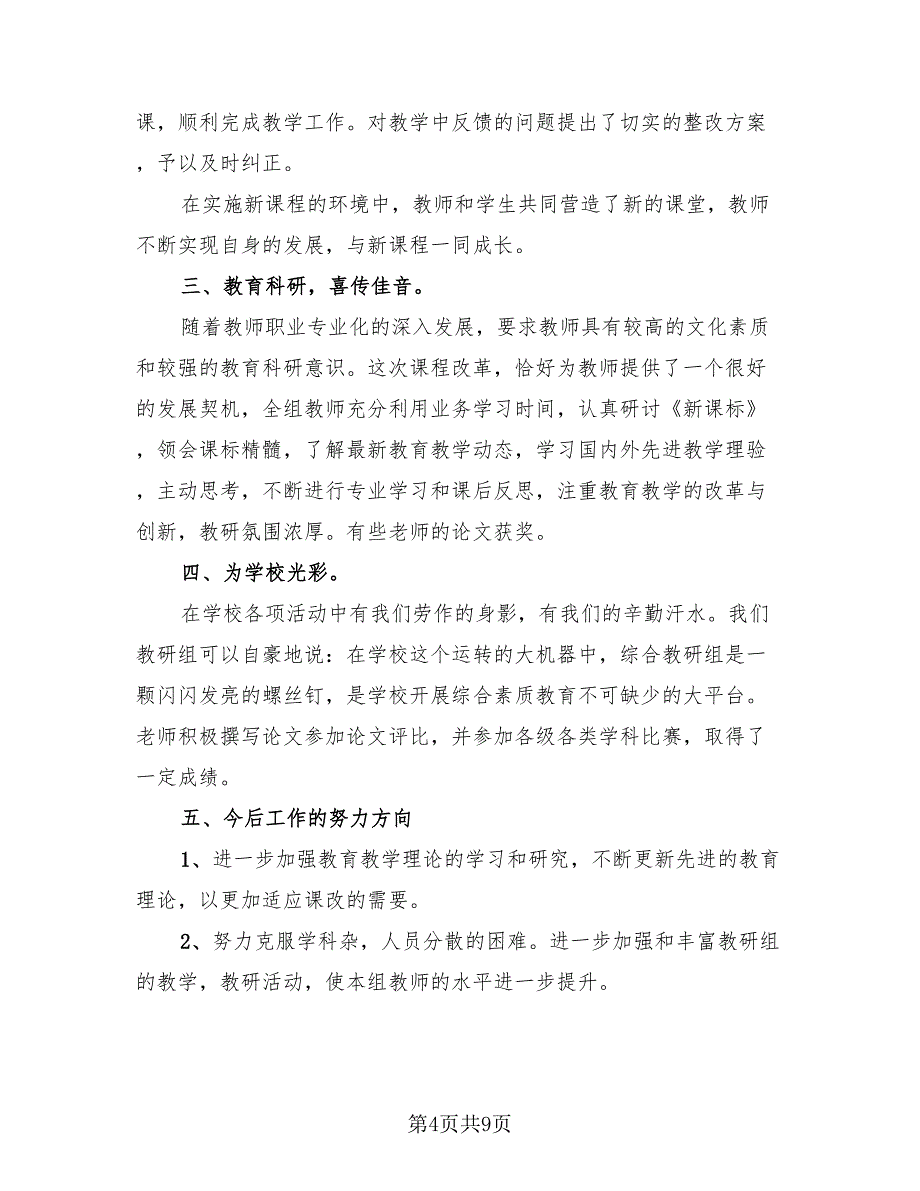 课，顺利完成教学工作。对教学中反馈的问题提出了切实的整改方案
，予以及时纠正。
在实施新课程的环境中，教师和学生共同营造了新的课堂，教师
不断实现自身的发展，与新课程一同成长。
三、教育科研，喜传佳音。
随着教师职业专业化的深入发展，要求教师具有较高的文化素质
和较强的教育科研意识。这次课程改革，恰好为教师提供了一个很好
的发展契机，全组教师充分利用业务学习时间，认真研讨《新课标》
，领会课标精髓，了解最新教育教学动态，学习国内外先进教学理验
，主动思考，不断进行专业学习和课后反思，注重教育教学的改革与
创新，教研氛围浓厚。有些老师的论文获奖。
四、为学校光彩。
在学校各项活动中有我们劳作的身影，有我们的辛勤汗水。我们
教研组可以自豪地说：在学校这个运转的大机器中，综合教研组是一
颗闪闪发亮的螺丝钉，是学校开展综合素质教育不可缺少的大平台。
老师积极撰写论文参加论文评比，并参加各级各类学科比赛，取得了
一定成绩。
五、今后工作的努力方向
1、进一步加强教育教学理论的学习和研究，不断更新先进的教育
理论，以更加适应课改的需要。
2、努力克服学科杂，人员分散的困难。进一步加强和丰富教研组
的教学，教研活动，使本组教师的水平进一步提升。
第4页共9页